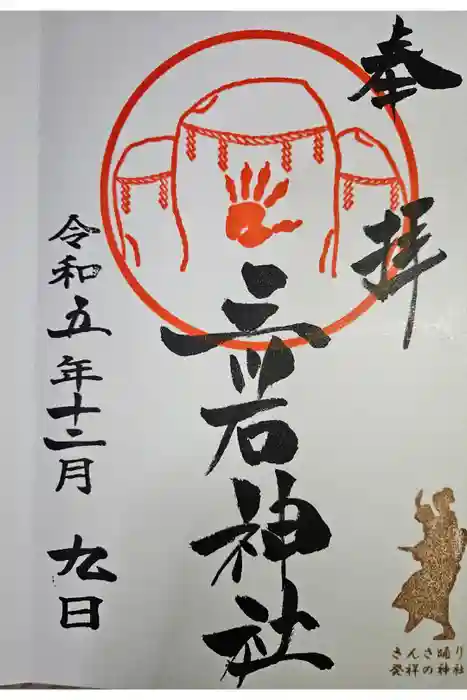 奉拝
三ツ石神社
令和五年十二月九日
さんさ踊り
発祥の神社